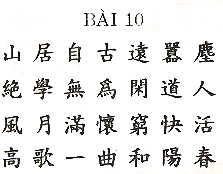 BÀI 10
山居自古遠囂塵
絶學無爲閑道人
風月滿懷窮快活
高歌一曲和陽春